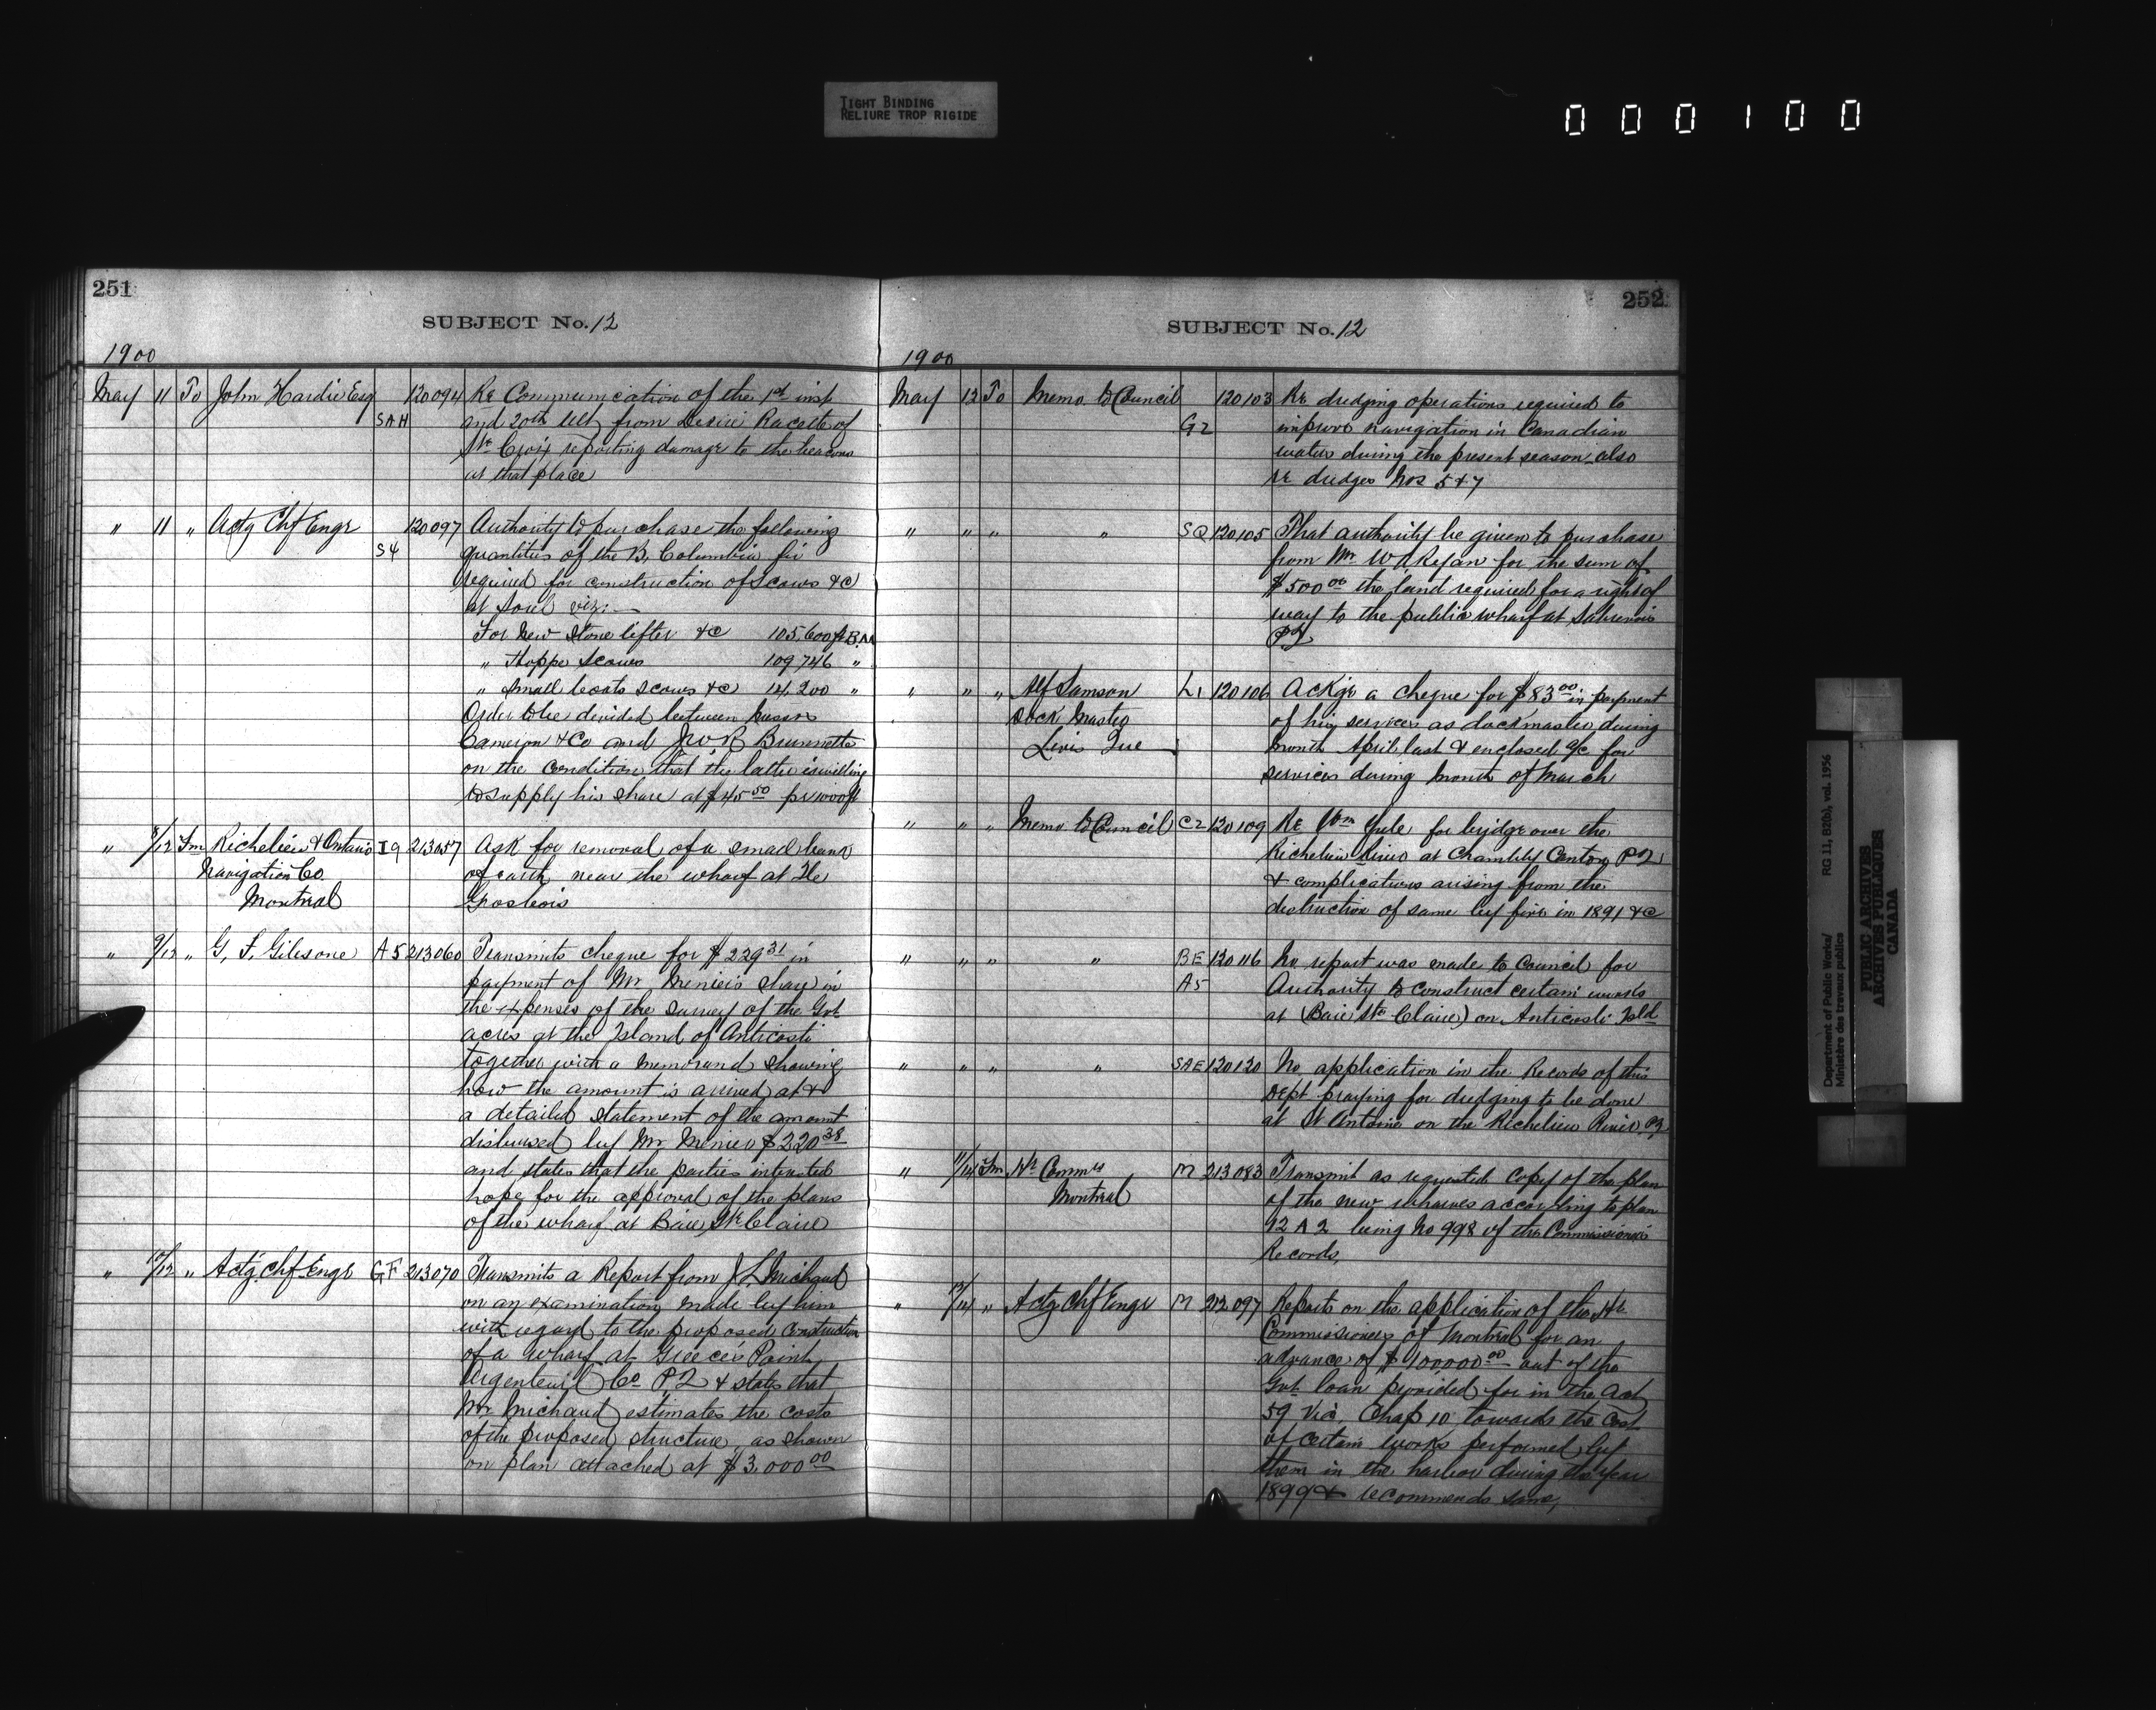 TIGHT BINDING
RELIURE TROP RIGIDE
000100
251
SUBJECT No. 12
1900
May 11 To John Hardie Esq 120094 Re Communication of the 1st inst
SAH and 20th Ult from Desire Racette of
Ste Croix reporting damage to the beacons
at that place
" 11 " Actg Chf Engr 120097 Authority to purchase the following
S4 quantities of the B. Columbia fir
required for construction of Scows &c
at Sorel viz: —
For New Stone lifter &c 105,600 ft B.M
" Hopper Scows 109,746 "
" Small boats scows &c 14,200 "
Order to be divided between Messrs
Cameron & Co and
on the condition that the latter is willing
to supply his share at $45 50 pr 1000 ft
" 8/12 Fm Richelieu & Ontario I9 213057 Ask for removal of a small bank
Navigation Co. of earth near the wharf at Ile
Montreal Grosbois
" 9/12 " G. F. Gibsone A5 213060 Transmits cheque for $229 31 in
payment of Mr Menier's share in
the expenses of the survey of the Govt
acres at the Island of Anticosti
together with a memorand showing
how the amount is arrived at &
a detailed statement of the amount
disbursed by Mr Menier $220 38
and states that the parties interested
hope for the approval of the plans
of the wharf at Baie Ste Claire
" 10/12 " Actg. Chf. Engr GF 213070 Transmits a Report from J L Michaud
on an examination made by him
with regard to the proposed construction
of a wharf at Greece's Point
Argenteuil Co P2 & states that
Mr Michaud estimates the costs
of the proposed structure as shown
on plan attached at $3,000 00
252
SUBJECT No. 12
1900
May 12 To Memo to Council 120103 Re dredging operations required to
G2 improve navigation in Canadian
waters during the present season also
re dredges Nos 5 & 7
" " " " SQ 120105 That authority be given to purchase
from Mr for the sum of
$500 00 the land required for a right of
way to the public wharf at Sabrevois
PQ
" " " Alf Samson L1 120106 Ackge a cheque for $83 00 in payment
Dock Master of his services as dockmaster during
Levis Que month April last & enclosed a/c for
services during month of March
" " " Memo to Council C2 120109 Re Wm Yule for bridge over the
Richelieu River at Chambly Canton PQ
& complications arising from the
destruction of same by fire in 1891 &c
" " " " BE 120116 No report was made to Council for
A5 Authority to construct certain works
at (Baie Ste Claire) on Anticosti Isld
" " " " SAE 120120 No application in the Records of this
Dept praying for dredging to be done
at St Antoine on the Richelieu River PQ
" 11/14 Fm Hr Commrs M 213083 Transmit as requested copy of the plan
Montreal of the new wharves according to plan
12 A 2 being No 998 of the Commissioners
Records,
" 12/14 " Actg Chf Engr M 212097 Reports on the application of the Hr
Commissioners of Montreal for an
advance of $100,000 00 out of the
Govt loan provided for in the Act
59 Vic. Chap 10 towards the cost
of certain works performed by
them in the harbor during the year
1899 & recommends same,
Department of Public Works/
Ministère des travaux publics
RG 11, B2(b), vol. 1956
PUBLIC ARCHIVES
ARCHIVES PUBLIQUES
CANADA